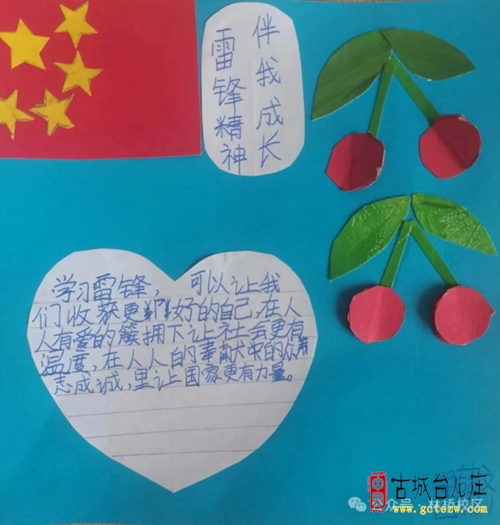 雷锋精神
伴我成长
学习雷锋，可以让我
们收获更好的自己,在人
人有爱的簇拥下让社会更有
温度,在人人的奉献中的众
志成诚,里让国家更有力量。
古城台儿庄
www.gctezw.com
公众号·林桥校区